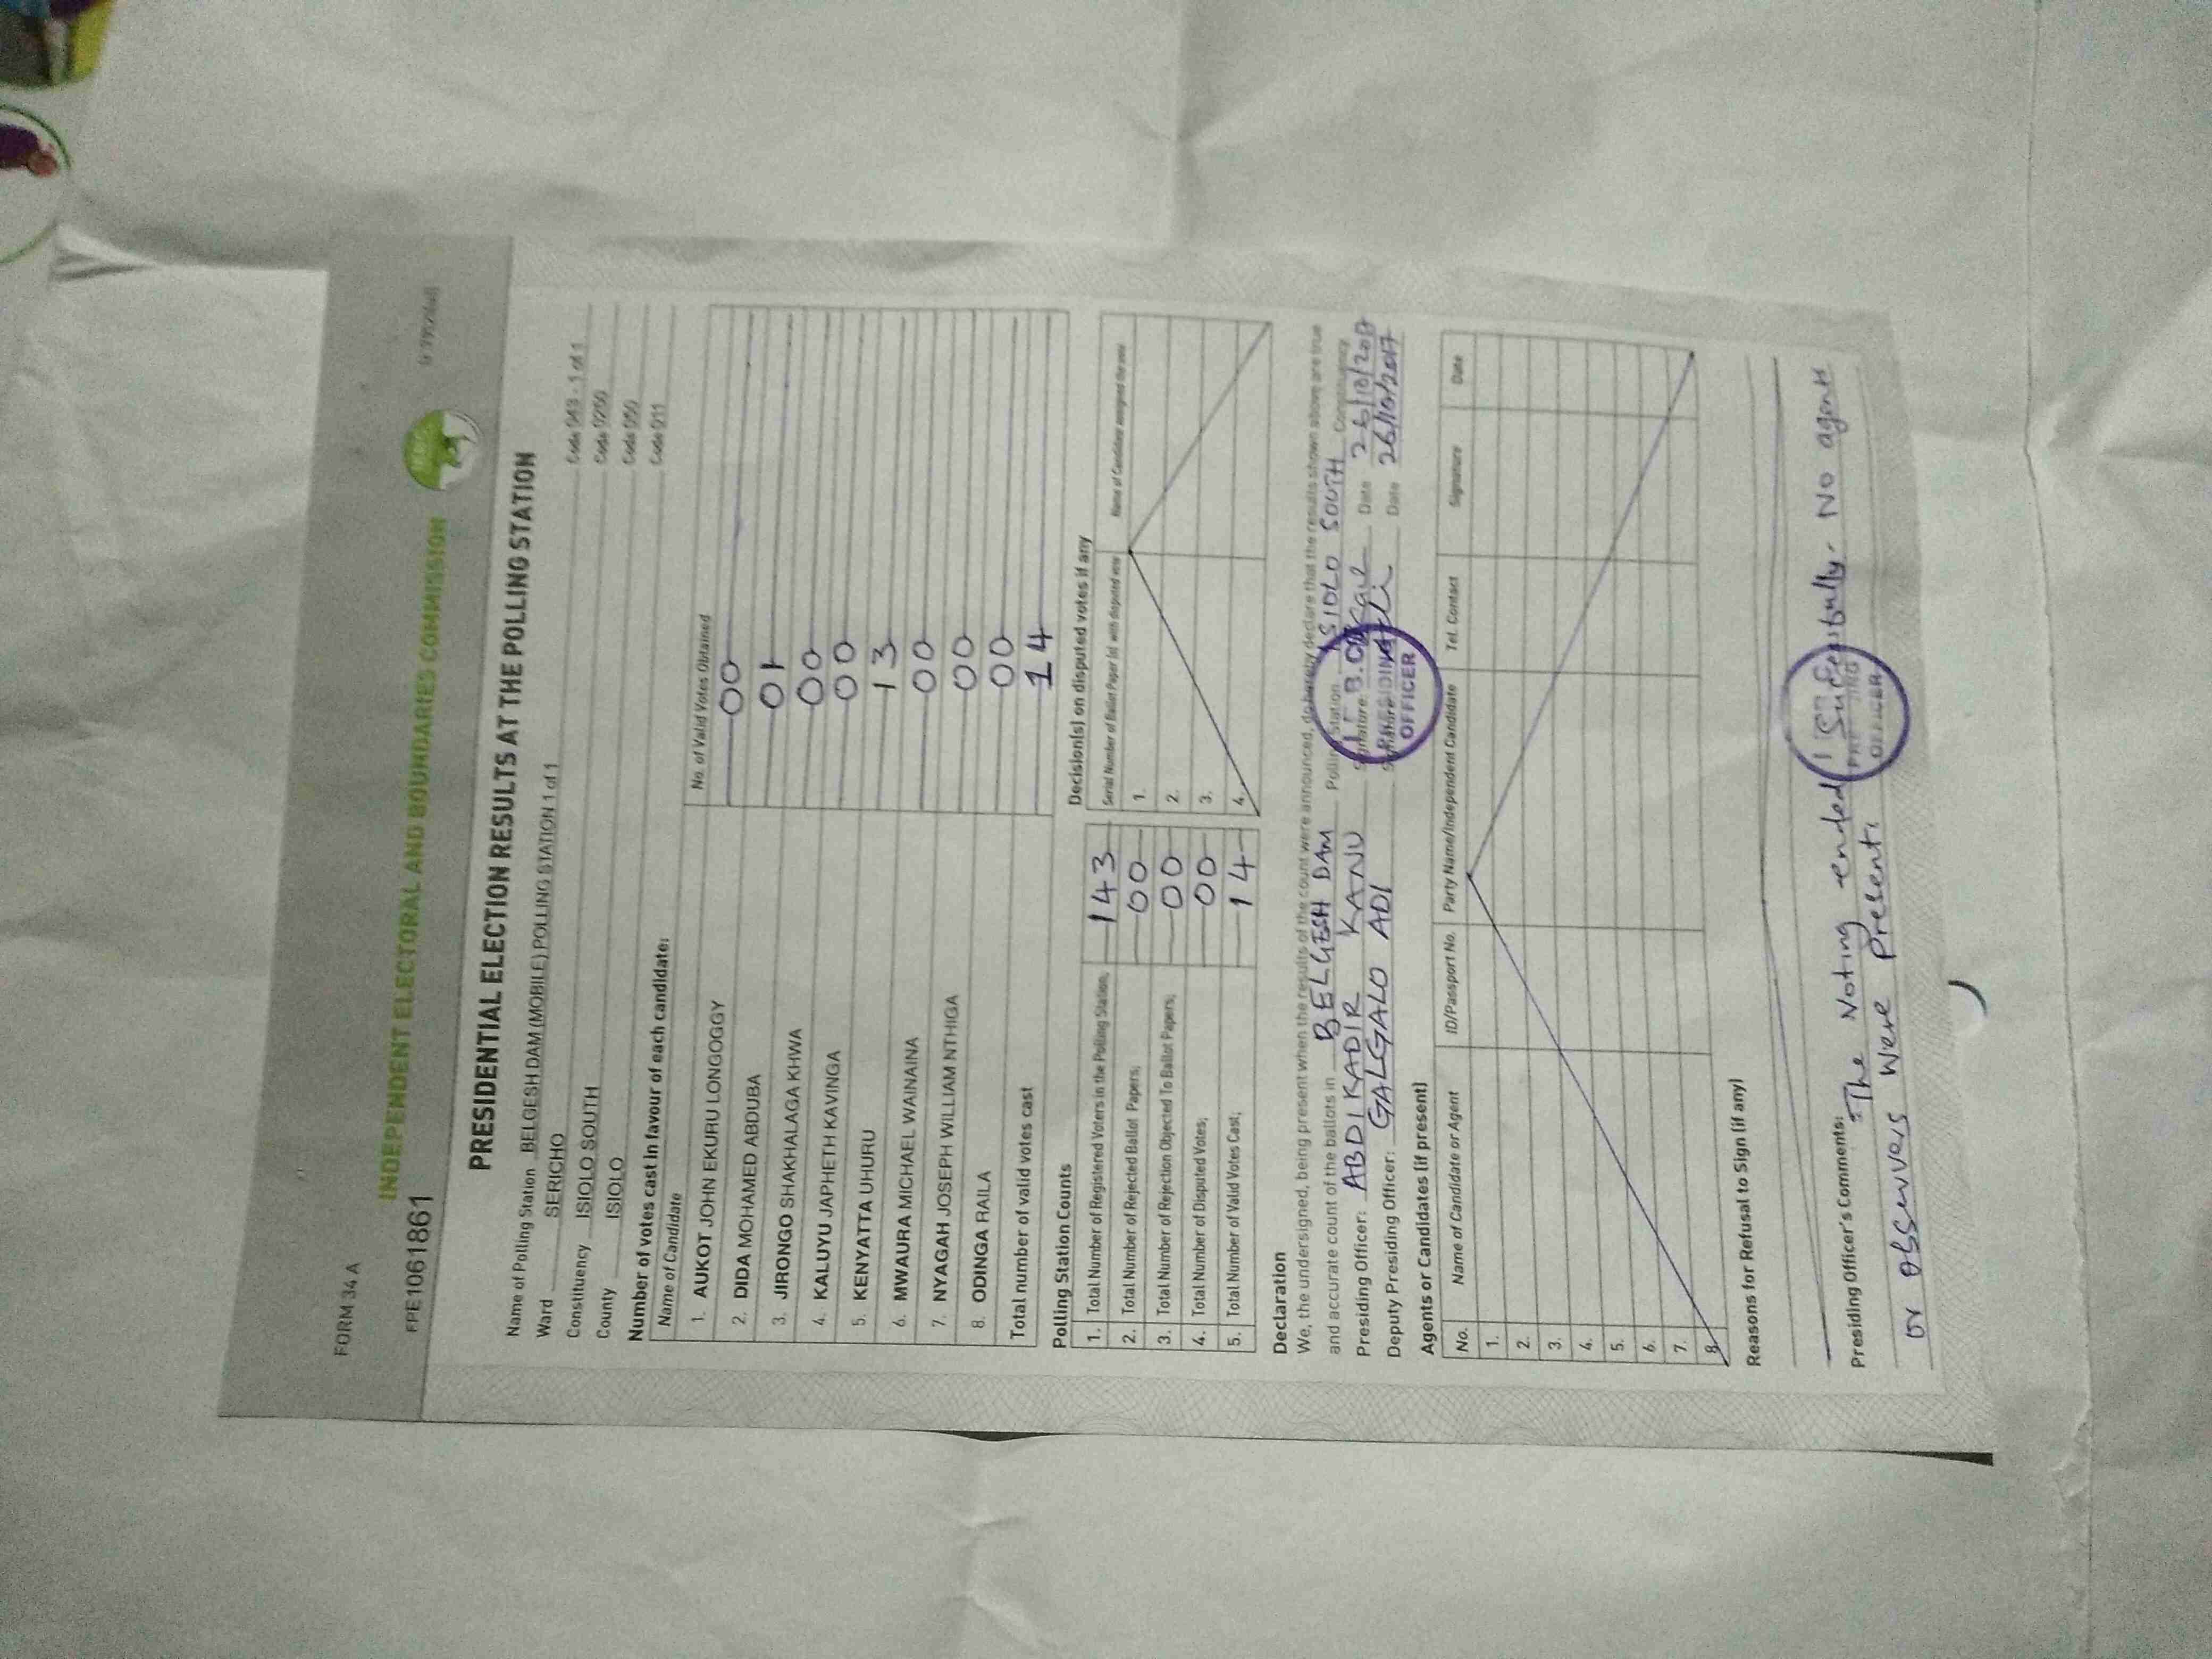 FORM 34 A
INDEPENDENT ELECTORAL AND BOUNDARIES COMMISSION
FPE1061861
PRESIDENTIAL ELECTION RESULTS AT THE POLLING STATION
Name of Polling Station BELGESH DAM (MOBILE) POLLING STATION 1 of 1 Code 043 - 1 of 1
Ward SERICHO Code 0250
Constituency ISIOLO SOUTH Code 050
County ISIOLO Code 011
Number of votes cast in favour of each candidate:
Name of Candidate No. of Valid Votes Obtained
1. AUKOT JOHN EKURU LONGOGGY 00
2. DIDA MOHAMED ABDUBA 01
3. JIRONGO SHAKHALAGA KHWA 00
4. KALUYU JAPHETH KAVINGA 00
5. KENYATTA UHURU 13
6. MWAURA MICHAEL WAINAINA 00
7. NYAGAH JOSEPH WILLIAM NTHIGA 00
8. ODINGA RAILA 00
Total number of valid votes cast 14
Polling Station Counts
1. Total Number of Registered Voters in the Polling Station; 143
2. Total Number of Rejected Ballot Papers; 00
3. Total Number of Rejection Objected To Ballot Papers; 00
4. Total Number of Disputed Votes; 00
5. Total Number of Valid Votes Cast; 14
Decision(s) on disputed votes if any
Serial Number of Ballot Paper (s) with disputed vote Name of Candidate assigned the vote
1.
2.
3.
4.
Declaration
We, the undersigned, being present when the results of the count were announced, do hereby declare that the results shown above are true
and accurate count of the ballots in BELGESH DAM Polling Station ISIOLO SOUTH Constituency
Presiding Officer: ABDIKADIR KANU Signature Date 26/10/2017
Deputy Presiding Officer: GALGALO ADI Signature Date 26/10/2017
PRESIDING
OFFICER
Agents or Candidates (if present)
No. Name of Candidate or Agent ID/Passport No. Party Name/Independent Candidate Tel. Contact Signature Date
1.
2.
3.
4.
5.
6.
7.
8.
Reasons for Refusal to Sign (if any)
Presiding Officer's Comments: The Voting ended No agent
or observers were present
OFFICER